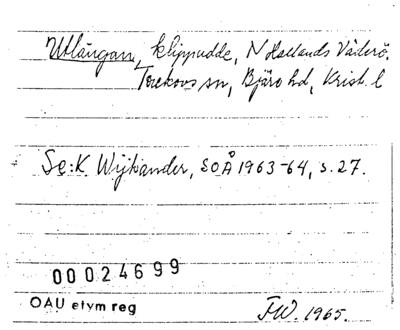 Utlängan, klippudde, N Hallands Väderö.
Torekovs sn, Bjäre hd, Krist. l
Se: K Wijkander, SOÅ 1963-64, s. 27.
00024699
OAU etym reg
FW. 1965.